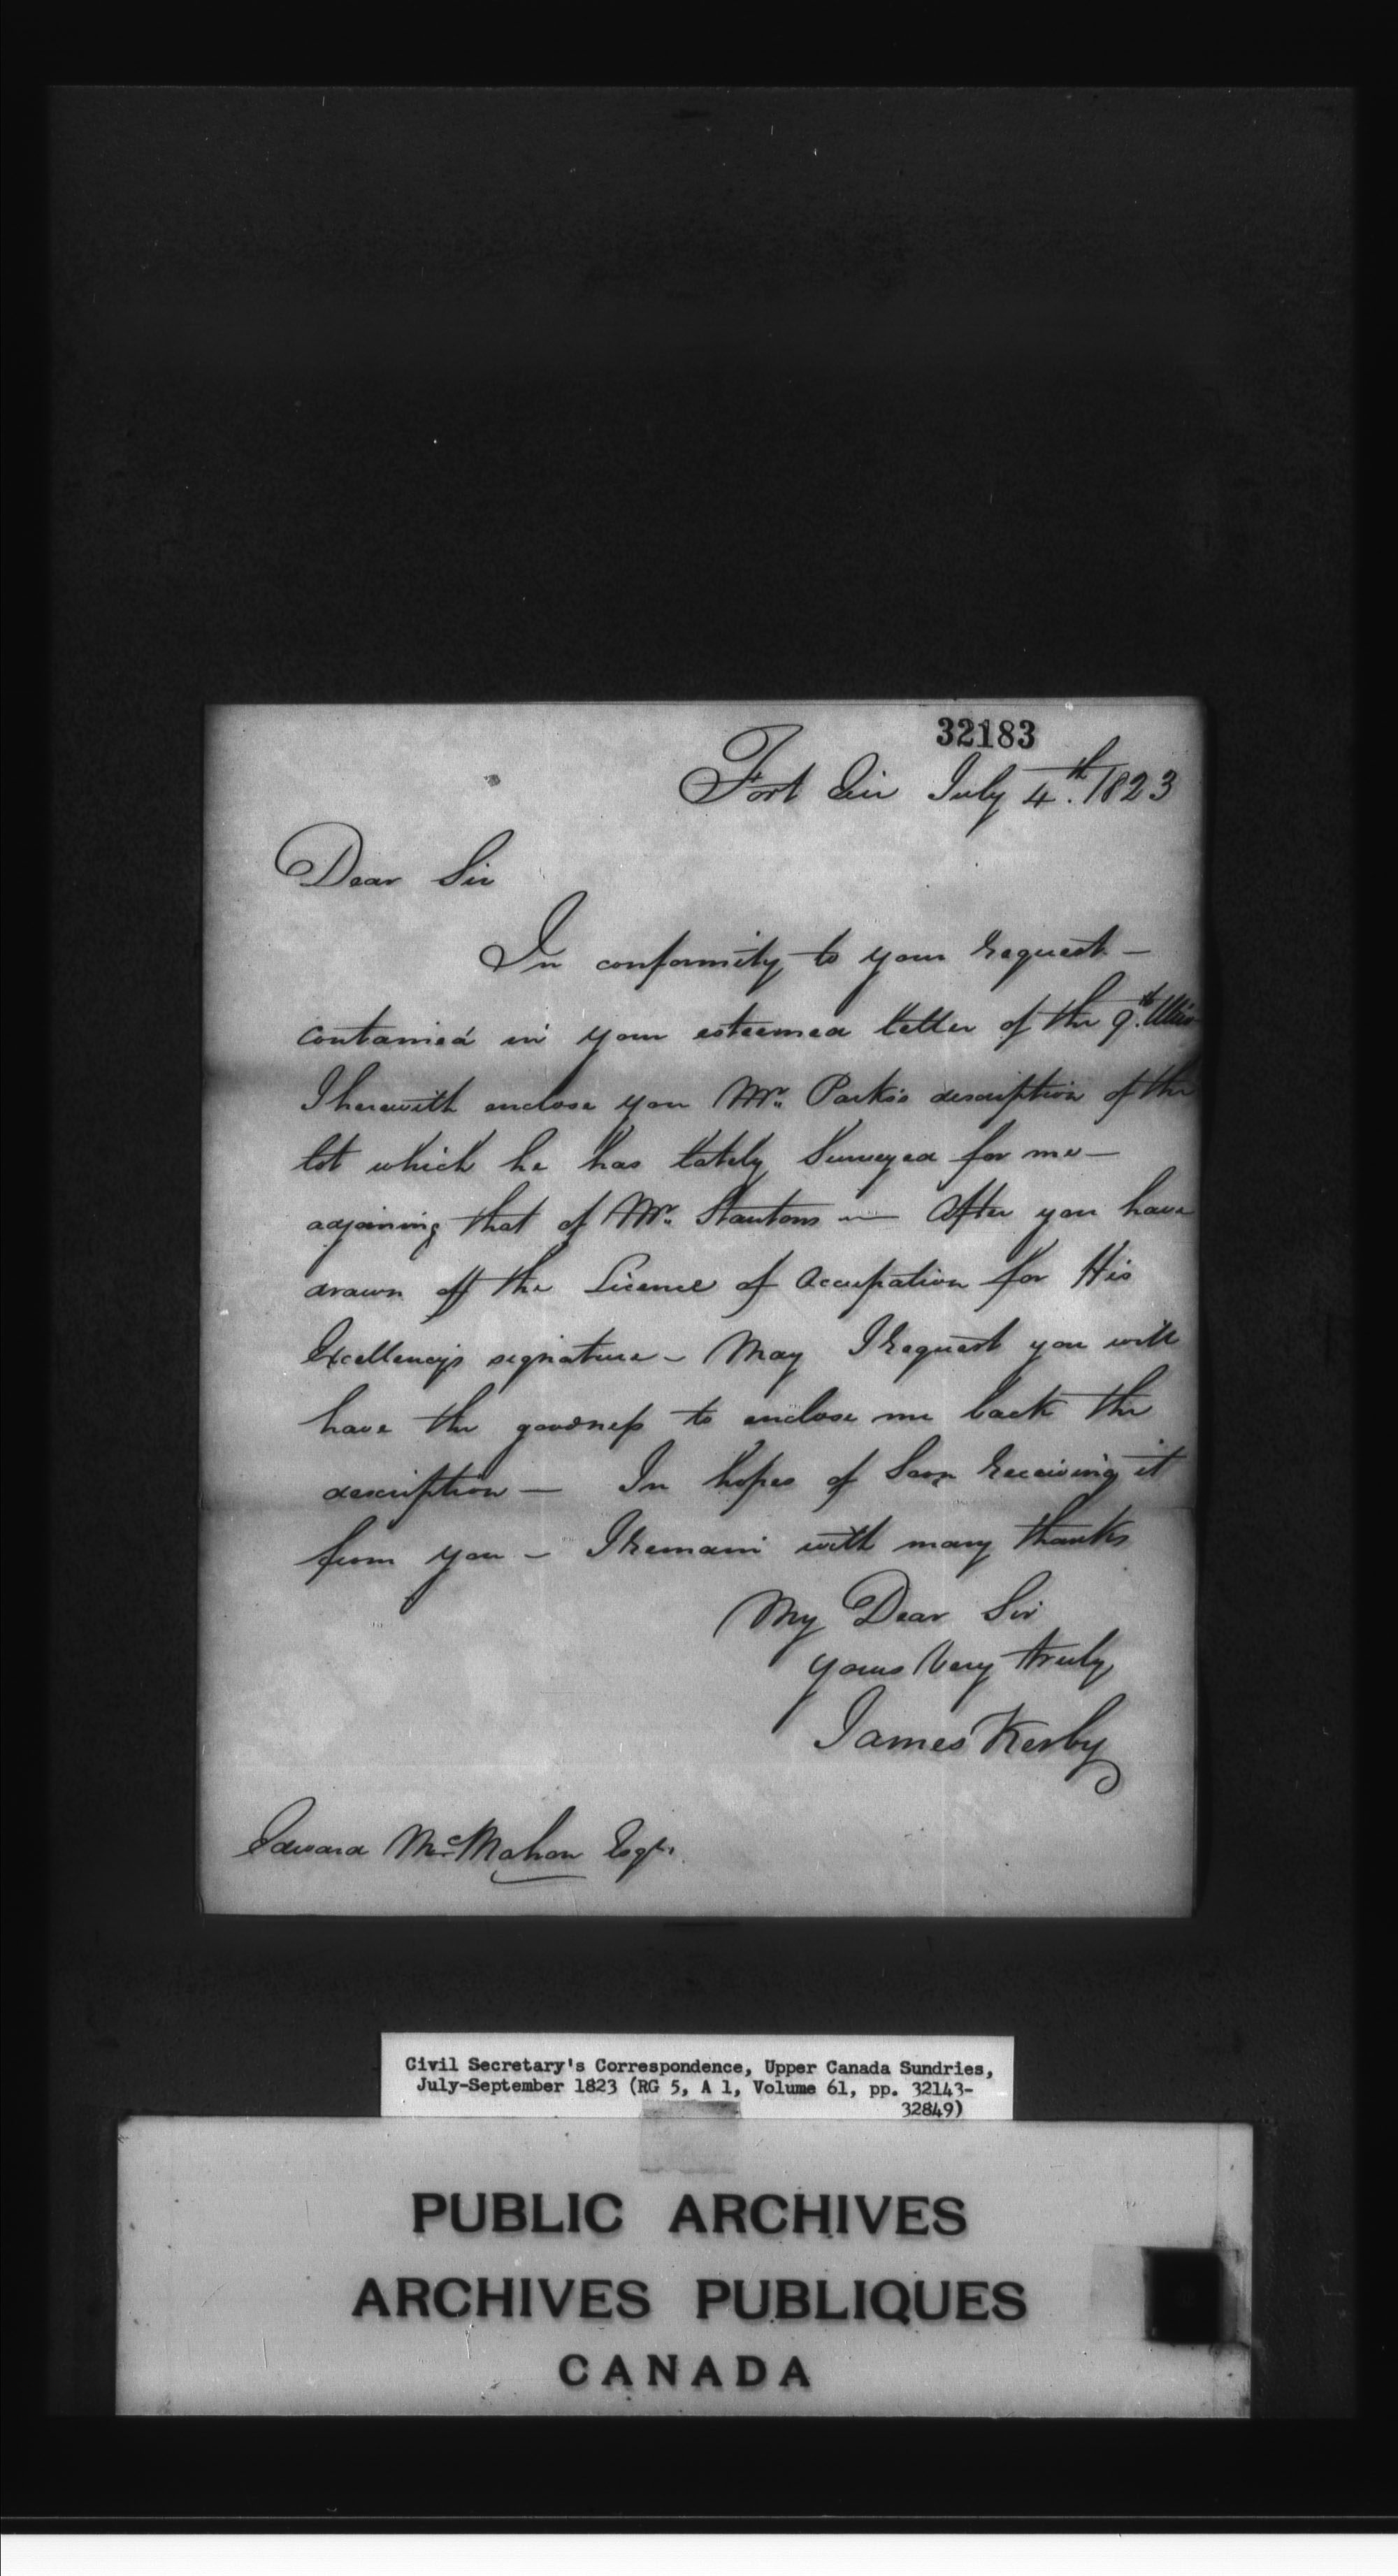 32183
Fort Erie July 4th. 1823
Dear Sir
In conformity to your request —
contained in your esteemed letter of the 9th. Ulto
I herewith enclose you Mr. Park's description of the
lot which he has lately Surveyed for me —
adjoining that of Mr. Stantons — After you have
drawn off the Licence of Occupation for His
Excellency's signature — May I request you will
have the goodness to enclose me back the
description — In hopes of Soon receiving it
from you — I remain with many thanks
My Dear Sir
yours Very truly
James Kerby
Edward McMahon Esqr.
Civil Secretary's Correspondence, Upper Canada Sundries,
July-September 1823 (RG 5, A 1, Volume 61, pp. 32143-
32849)
PUBLIC ARCHIVES
ARCHIVES PUBLIQUES
CANADA